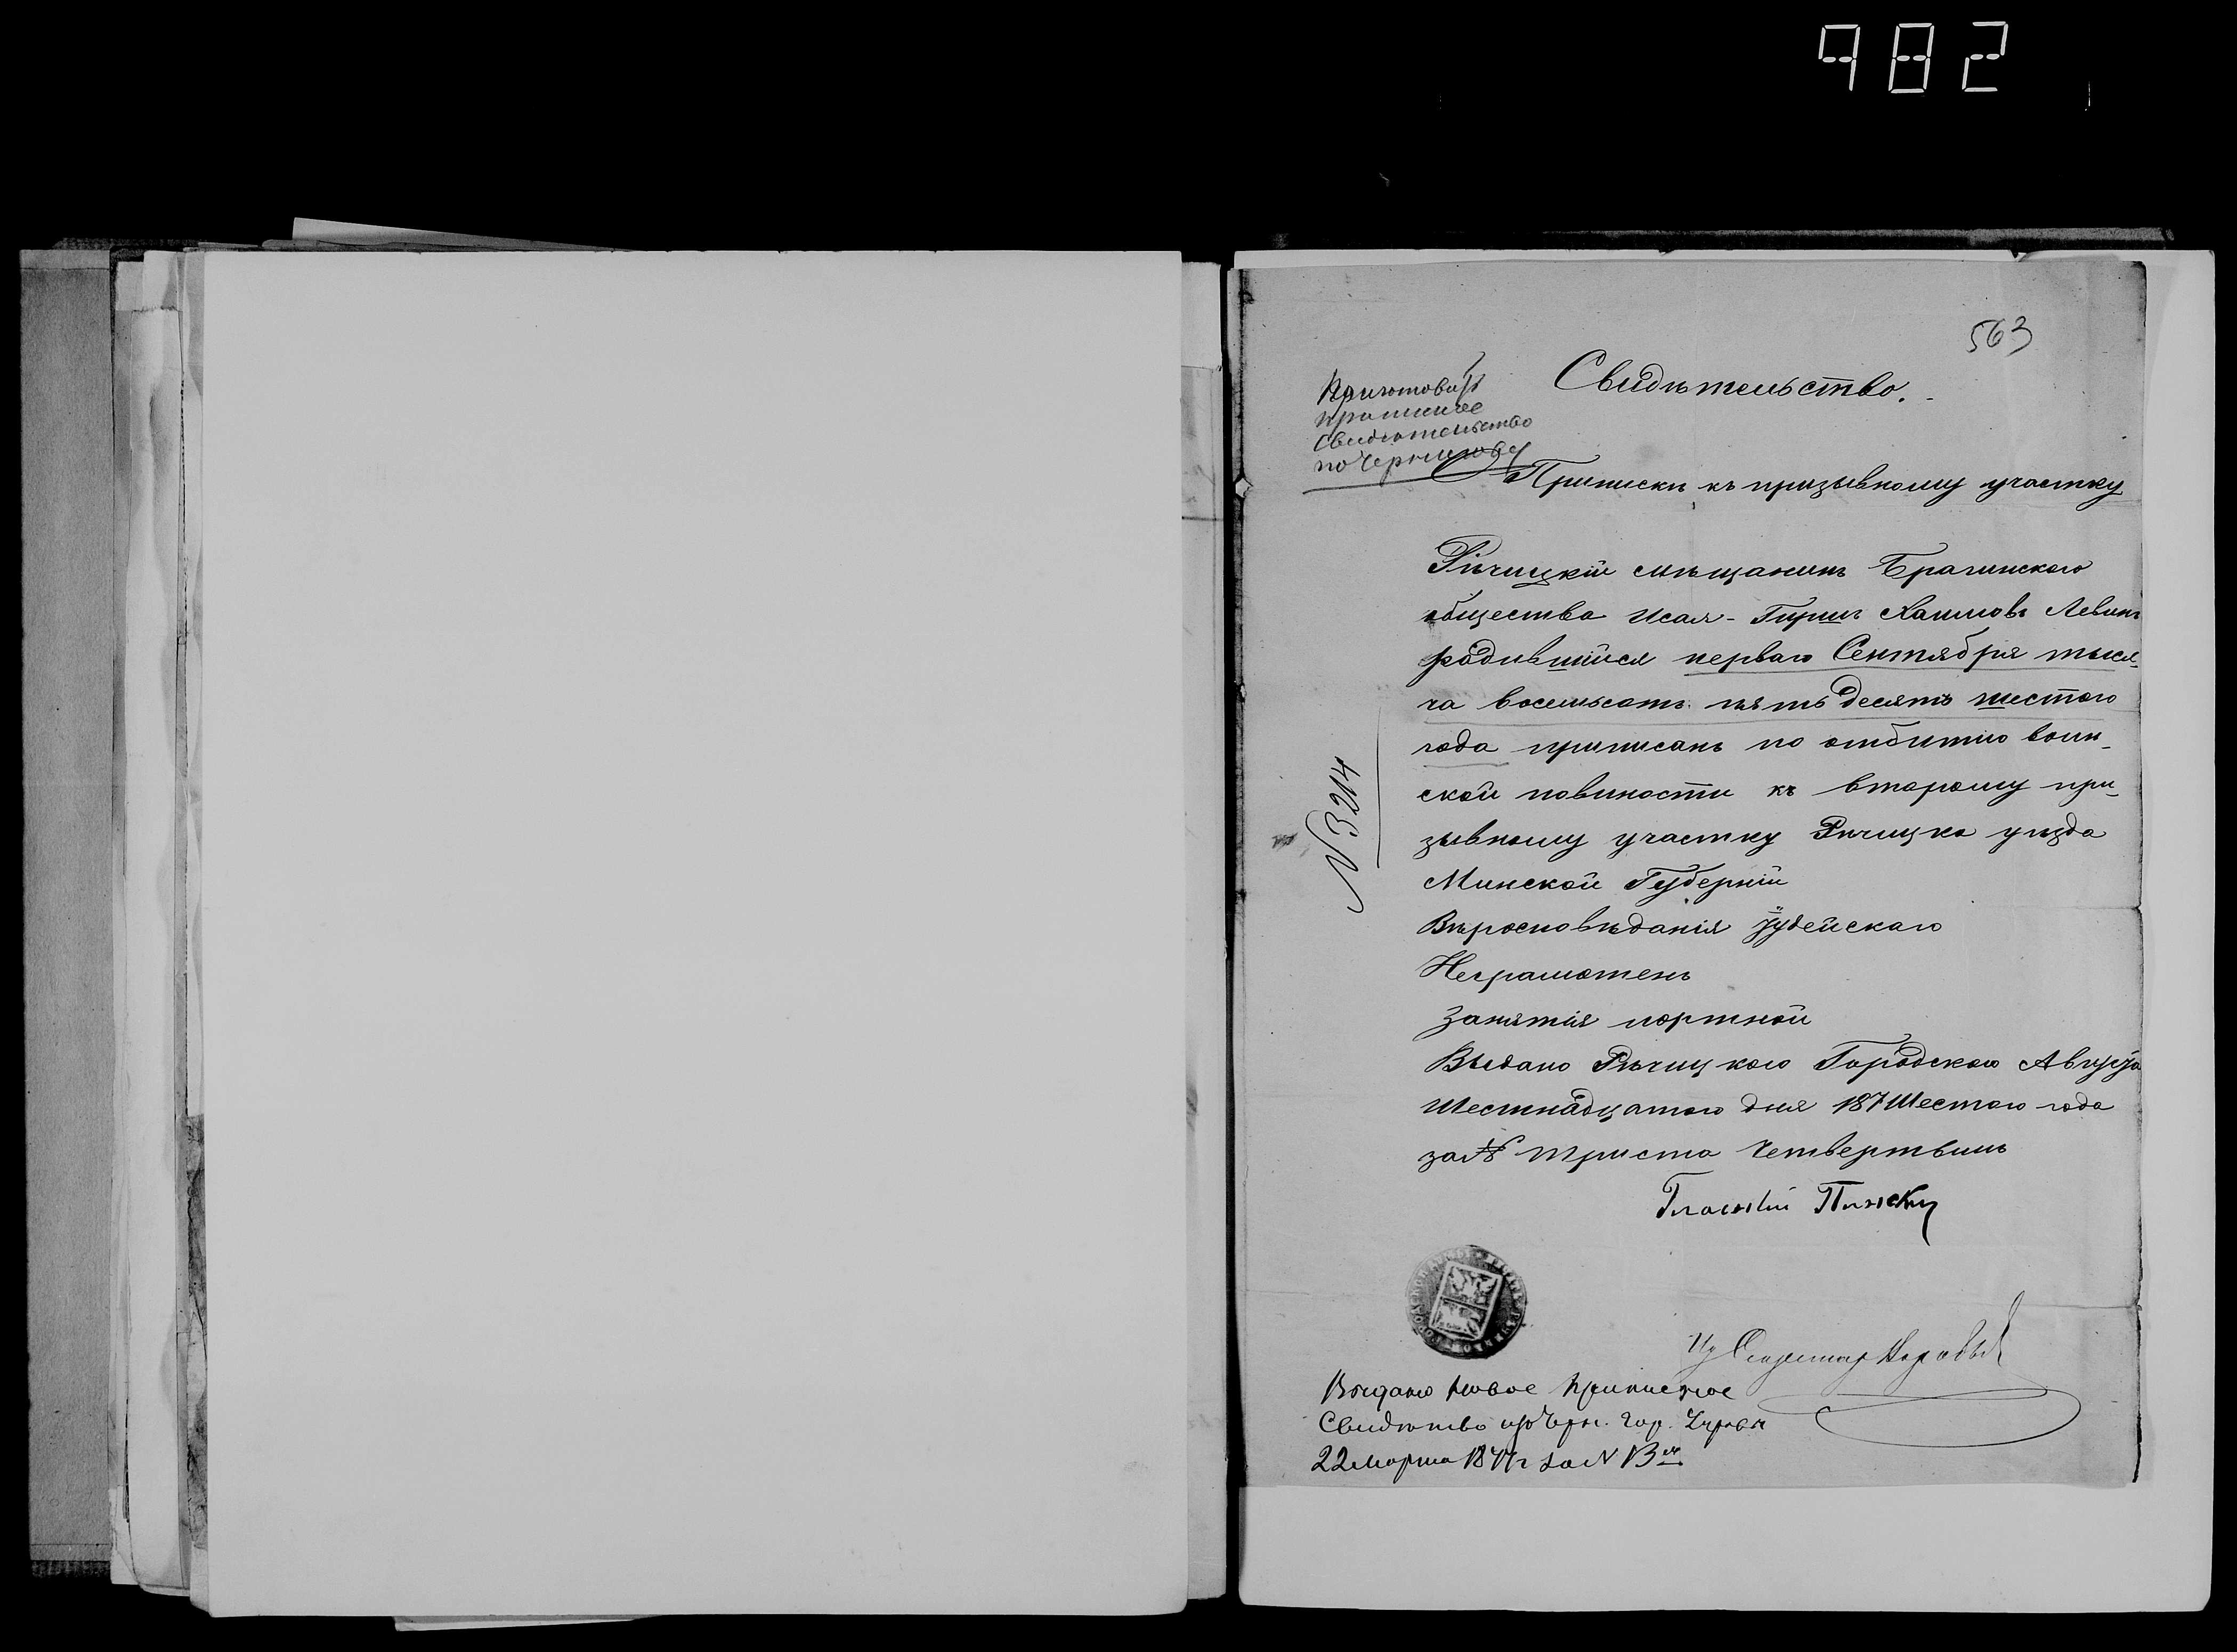 982
563
Свидѣтельство.
Приготовить
приписное
свидѣтельство
по Чернигову
Приписки къ призывному участку
Рѣчицкій мѣщанинъ Брагинскаго
общества Исая-Гиршъ Хаимовъ Левинъ
родившійся перваго Сентября тыся-
ча восемьсотъ пятьдесятъ шестого
года приписанъ по отбытію воин-
ской повиности къ второму при-
зывному участку Рѣчицка уѣзда
Минской Губерніи
Вѣросповѣданія Іудейскаго
Неграмотенъ
Занятія портной
№ 3214
Выдано Рѣчицкого Городского Августа
Шестнадцатого дня 187Шестого года
за № триста Четвертымъ
Гласный Пинский
Выдано новое приписное
Свид. изъ Черн. Гор.
22 Марта 1877 г за №